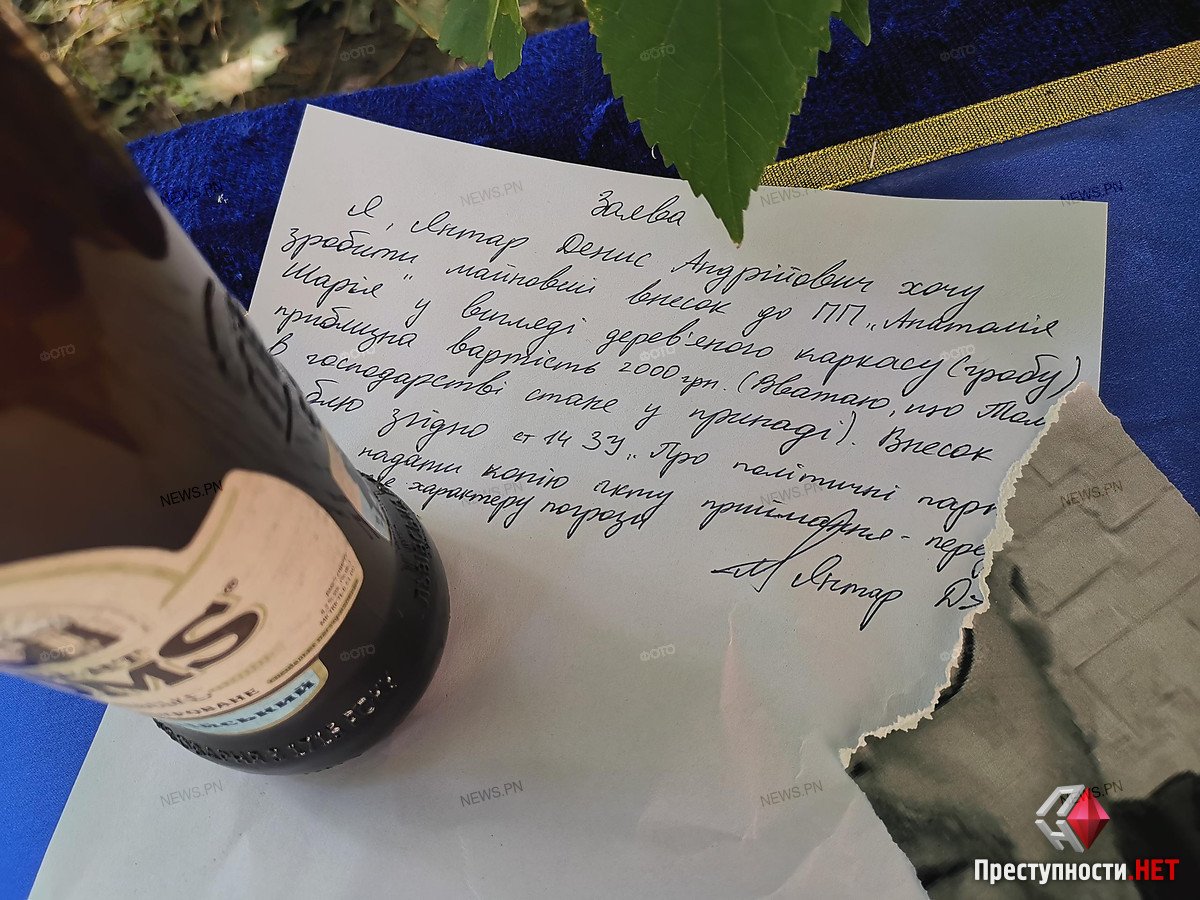 Заява
Я, Янтар Денис Андрійович хочу
зробити майновий внесок до ПП „Анатолія
Шарія" у вигляді дерев'яного каркасу (гробу)
приблизна вартість 2000 грн. (Вважаю, що
в господарстві стане у пригоді). Внесок
згідно ст 14 ЗУ „Про політичні
надати копію акту приймання -
характеру погрози
Янтар
MS®
1715
NEWS.PN
ФОТО
Преступности.НЕТ